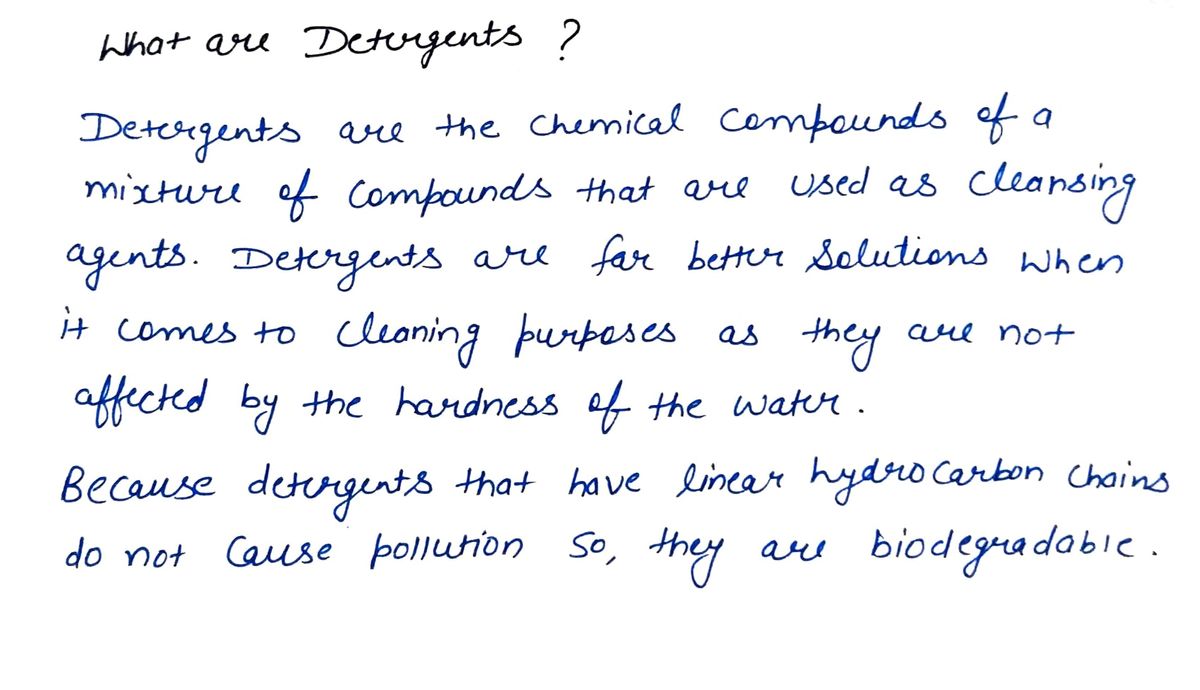 What are Detergents ?
Detergents are the chemical compounds of a
mixture of compounds that are used as cleansing
agents. Detergents are far better solutions when
it comes to cleaning purposes as they are not
affected by the hardness of the water.
Because detergents that have linear hydrocarbon chains
do not cause pollution so, they are biodegradable.